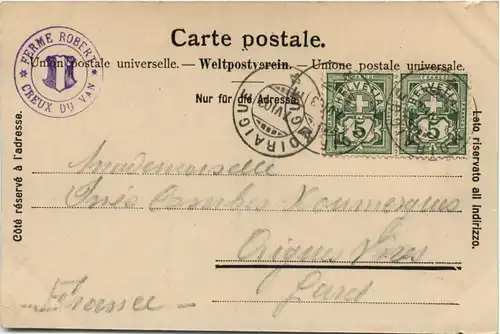 Carte postale.
Union postale universelle. — Weltpostverein. — Unione postale universale.
Nur für die Adresse.
FERME ROBERT
CREUX DU VAN
NOIRAIGUE
HELVETIA
5
HELVETIA
5
Côté réservé à l'adresse.
Lato riservato all indirizzo.
Mademoiselle
Combes
Aigues Vives
Gard
France